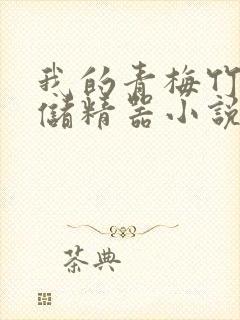 我的青梅竹
儲精器小說
茶典